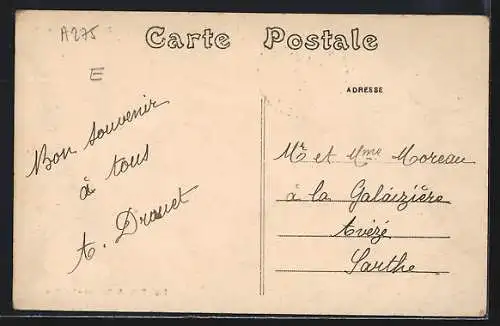 A275
E
Carte Postale
ADRESSE
Bon souvenir
à tous
A. Drouet
Mr et Mme Moreau
à la Galaizière
Avezé
Sarthe